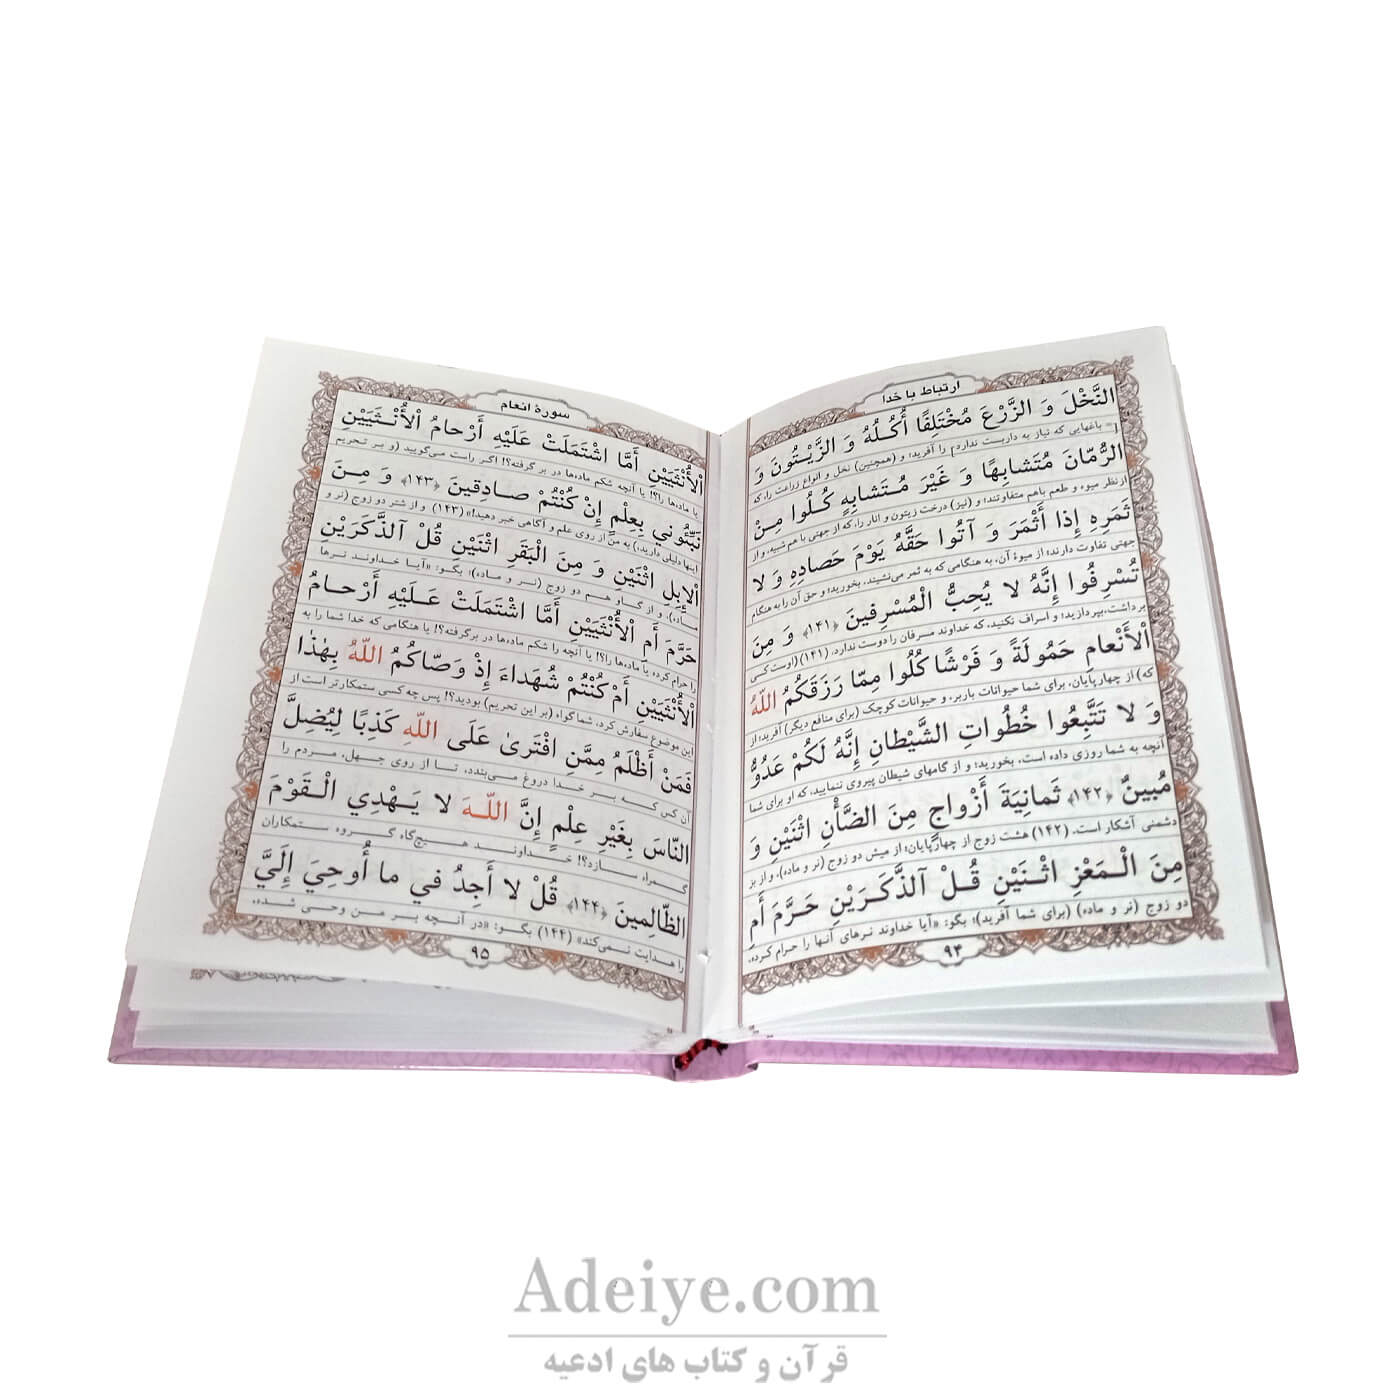 ارتباط با خدا
النَّخْلَ وَ الزَّرْعَ مُخْتَلِفًا أُكُلُهُ وَ الزَّيْتُونَ وَ
[= باغهایی که نیاز به داربست ندارد] را آفرید؛ و (همچنین) نخل و انواع زراعت را، که
الرُّمّانَ مُتَشابِهًا وَ غَيْرَ مُتَشابِهٍ كُلُوا مِنْ
ازنظر میوه و طعم باهم متفاوتند؛ و (نیز) درخت زیتون و انار را، که از جهتی با هم شبیه، و از
ثَمَرِهِ إِذا أَثْمَرَ وَ آتُوا حَقَّهُ يَوْمَ حَصادِهِ وَ لا
جهتی تفاوت دارند؛ از میوهٔ آن، به هنگامی که به ثمر می‌نشیند، بخورید؛ و حق آن را به هنگام
تُسْرِفُوا إِنَّهُ لا يُحِبُّ الْمُسْرِفينَ ﴿۱۴۱﴾ وَ مِنَ
برداشت، بپردازید؛ و اسراف نکنید، که خداوند مسرفان را دوست ندارد. (۱۴۱) (اوست کسی
الْأَنْعامِ حَمُولَةً وَ فَرْشًا كُلُوا مِمّا رَزَقَكُمُ اللّهُ
که) از چهارپایان، برای شما حیوانات باربر، و حیوانات کوچک (برای منافع دیگر) آفرید؛ از
وَ لا تَتَّبِعُوا خُطُواتِ الشَّيْطانِ إِنَّهُ لَكُمْ عَدُوٌّ
آنچه به شما روزی داده است، بخورید؛ و از گامهای شیطان پیروی ننمایید، که او برای شما
مُبينٌ ﴿۱۴۲﴾ ثَمانِيَةَ أَزْواجٍ مِنَ الضَّأْنِ اثْنَيْنِ وَ
دشمنی آشکار است. (۱۴۲) هشت زوج از چهارپایان؛ از میش دو زوج (نر و ماده)، و از بز
مِنَ الْمَعْزِ اثْنَيْنِ قُلْ آلذَّكَرَيْنِ حَرَّمَ أَمِ
دو زوج (نر و ماده) (برای شما آفرید)؛ بگو: «آیا خداوند نرهای آنها را حرام کرده،
۹۴
سورهٔ انعام
الْأُنْثَيَيْنِ أَمَّا اشْتَمَلَتْ عَلَيْهِ أَرْحامُ الْأُنْثَيَيْنِ
یا ماده‌ها را؟! یا آنچه شکم ماده‌ها در بر گرفته؟! اگر راست می‌گویید (و بر تحریم
نَبِّئُوني بِعِلْمٍ إِنْ كُنْتُمْ صادِقينَ ﴿۱۴۳﴾ وَ مِنَ
اینها دلیلی دارید،) به من از روی علم و آگاهی خبر دهید!» (۱۴۳) و از شتر دو زوج (نر و
الْإِبِلِ اثْنَيْنِ وَ مِنَ الْبَقَرِ اثْنَيْنِ قُلْ آلذَّكَرَيْنِ
ماده)، و از گاو هم دو زوج (نر و ماده)؛ بگو: «آیا خداوند نرها
حَرَّمَ أَمِ الْأُنْثَيَيْنِ أَمَّا اشْتَمَلَتْ عَلَيْهِ أَرْحامُ
را حرام کرده یا ماده‌ها را؟! یا آنچه را شکم ماده‌ها در برگرفته؟! یا هنگامی که خدا شما را به
الْأُنْثَيَيْنِ أَمْ كُنْتُمْ شُهَداءَ إِذْ وَصّاكُمُ اللّهُ بِهٰذا
این موضوع سفارش کرد، شما گواه (بر این تحریم) بودید؟! پس چه کسی ستمکارتر است از
فَمَنْ أَظْلَمُ مِمَّنِ افْتَرىٰ عَلَى اللّهِ كَذِبًا لِيُضِلَّ
آن کس که بر خدا دروغ می‌بندد، تا از روی جهل، مردم را
النّاسَ بِغَيْرِ عِلْمٍ إِنَّ اللّهَ لا يَهْدِي الْقَوْمَ
گمراه سازد؟! خداوند هیچ‌گاه گروه ستمکاران
الظّالِمينَ ﴿۱۴۴﴾ قُلْ لا أَجِدُ في ما أُوحِيَ إِلَيَّ
را هدایت نمی‌کند» (۱۴۴) بگو: «در آنچه بر من وحی شده،
۹۵
Adeiye.com
قرآن و کتاب های ادعیه